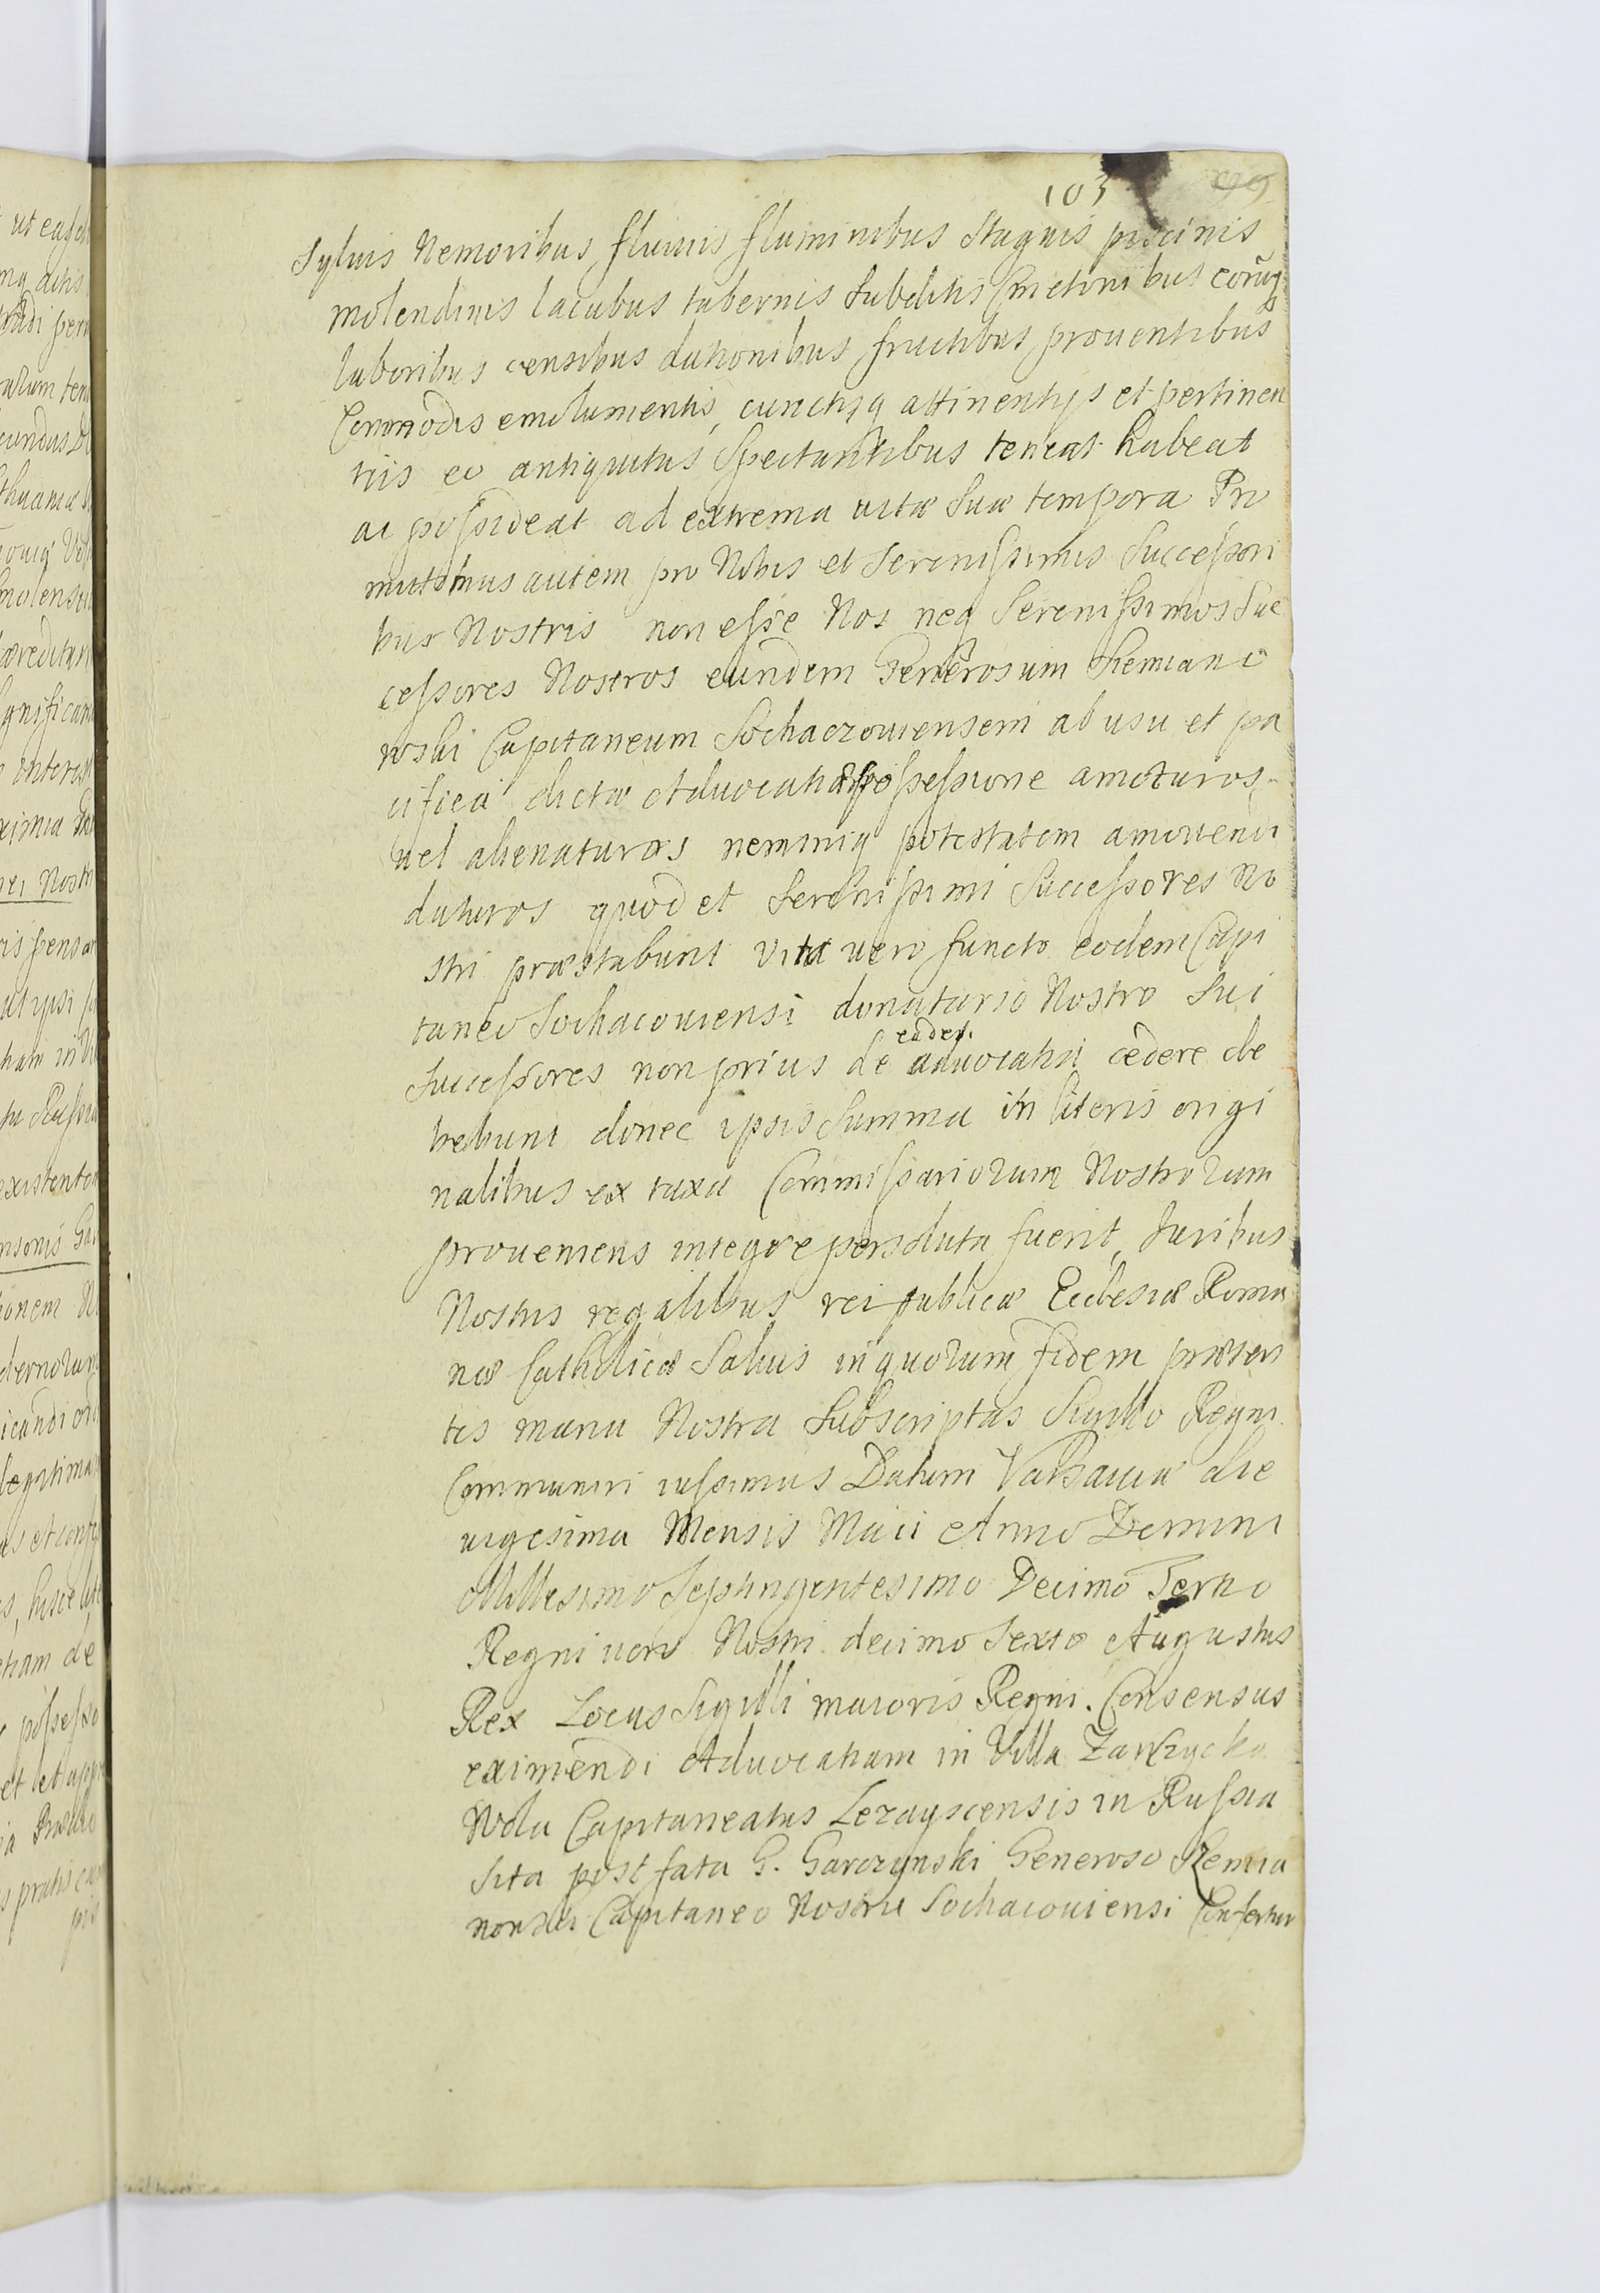 103 99
Sylvis Nemoribus fluuiis fluminibus Stagnis piscinis
molendinis lacubus tabernis Subditis Cmetonibus eorũq
laboribus censibus dationibus fructibus prouentibus
Commodis emolumentis, cunctisq attinentijs et pertinen
tiis eo antiquitus Spectantibus teneat habeat
ac possideat ad extrema vitæ Suæ tempora Pro
mittimus autem pro Nobis et Serenissimis Successori
bus Nostris non esse Nos neq Serenissimos Suc
cessores Nostros eundem Generosum Szemiano
wski Capitaneum Sochaczouiensem ab usu et pa
cifica dictæ Aduocatiæ possessione amoturos
uel alienaturos neminiq potestatem amouendi
daturos quod et Serenissimi Successores No
stri præstabunt Vita uero functo eodem Capi
taneo Sochacouiensi donatario Nostro Sui
Successores non prius de eadem aduocatia cedere de
bebunt donec ipsis Summa in literis origi
nalibus ex taxa Commissariorum Nostrorum
proueniens integre persoluta fuerit, Iuribus
Nostris regalibus reipublicæ Ecclesiæ Roma
næ Catholicæ Saluis in quorum fidem præsen
tes manu Nostra Subscriptas Sigillo Regni
Communiri iussimus Datum Varsauiæ die
uigesima Mensis Maii Anno Domini
Millesimo Septingentesimo Decimo Terno
Regni uero Nostri decimo Sexto Augustus
Rex Locus Sigilli maioris Regni. Consensus
eximendi Aduocatiam in Villa
Wola Capitaneatus Lezayscensis in Russia
Sita post fata G. Garczynski Generoso Szemia
nowski Capitaneo Nostro Sochacouiensi Confertur